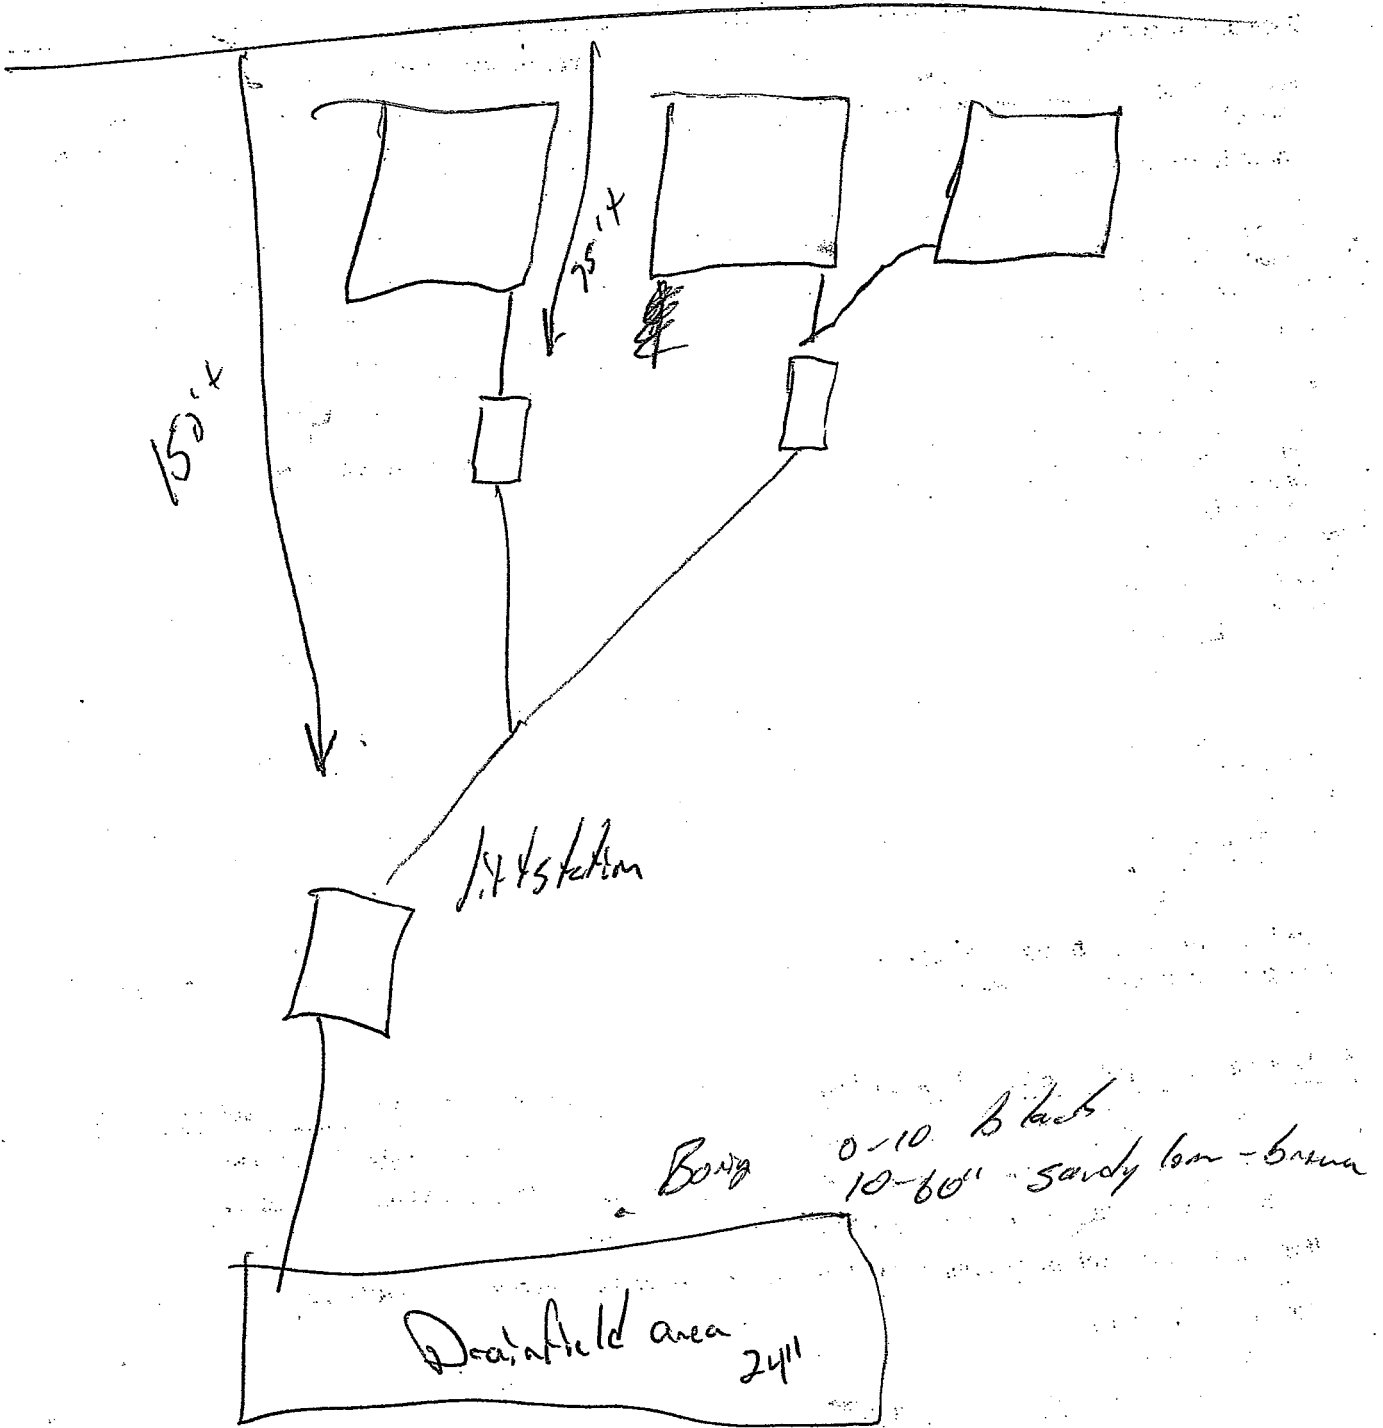 75'±
150'±
liftstation
Boring 0-10 black
10-60" sandy loam - brown
Drainfield area
24"